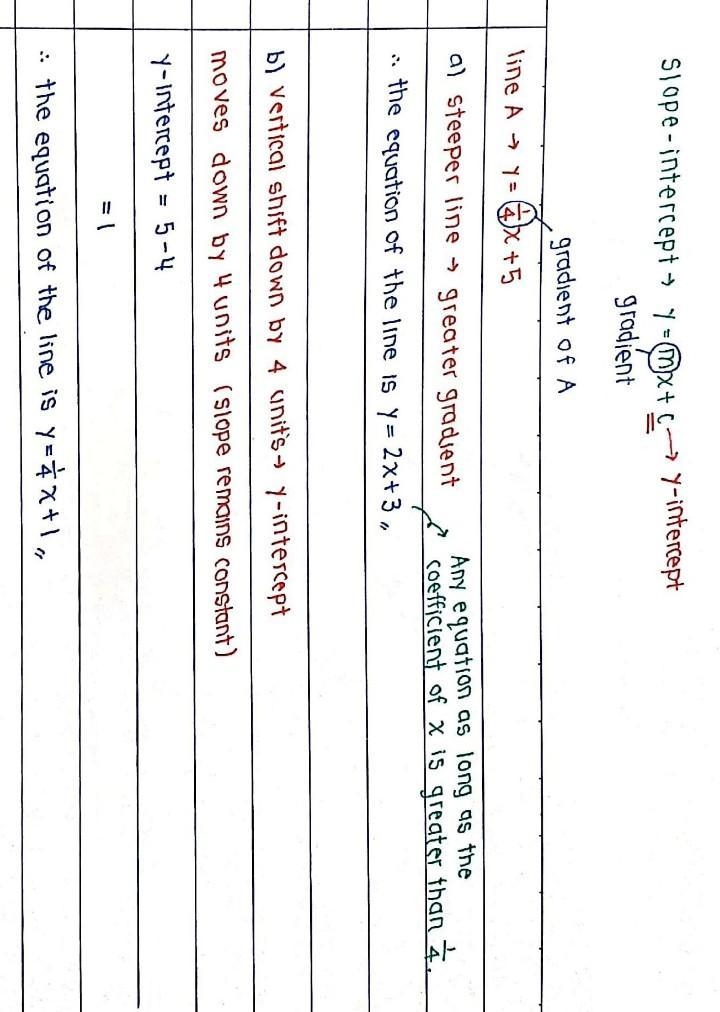 Slope-intercept → y = mx + c → y-intercept
gradient
gradient of A
line A → y = 1/4 x + 5
a) steeper line → greater gradient
Any equation as long as the
coefficient of x is greater than 1/4.
∴ the equation of the line is y = 2x+3 〃
b) vertical shift down by 4 units → y-intercept
moves down by 4 units (slope remains constant)
y-intercept = 5-4
= 1
∴ the equation of the line is y = 1/4 x + 1 〃